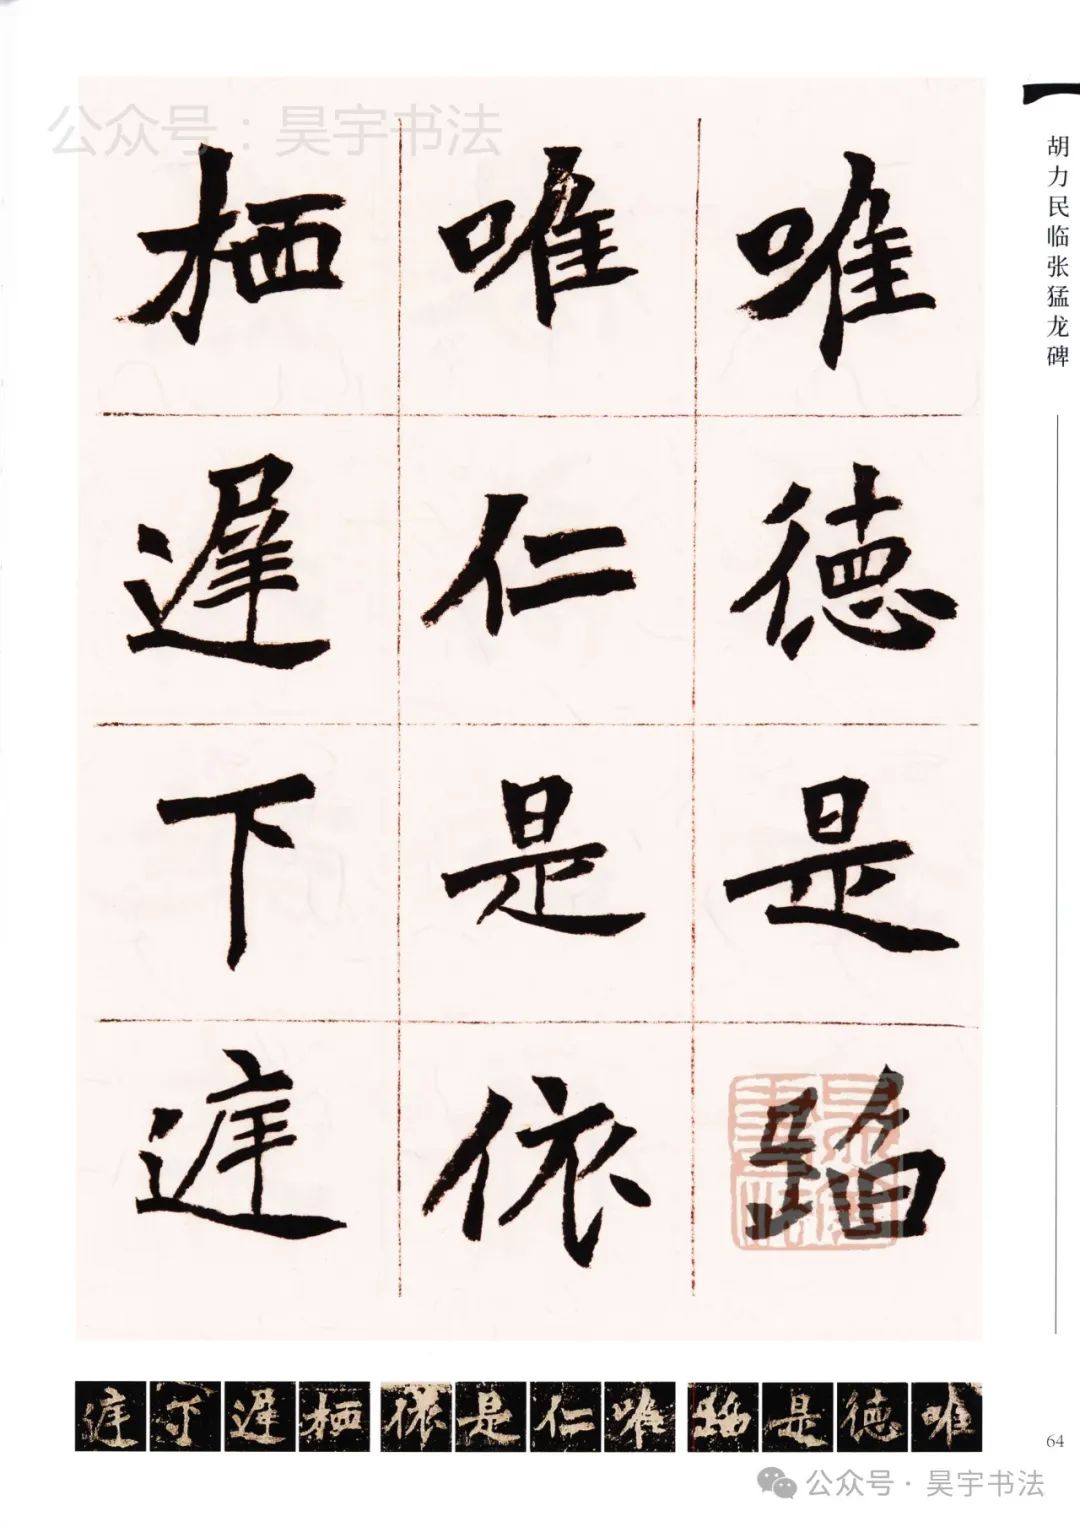 公众号：昊宇书法
胡力民临张猛龙碑
唯德是蹈
唯仁是依
栖遲下迋
迋下遲栖依是仁唯蹈是德唯
64
公众号·昊宇书法